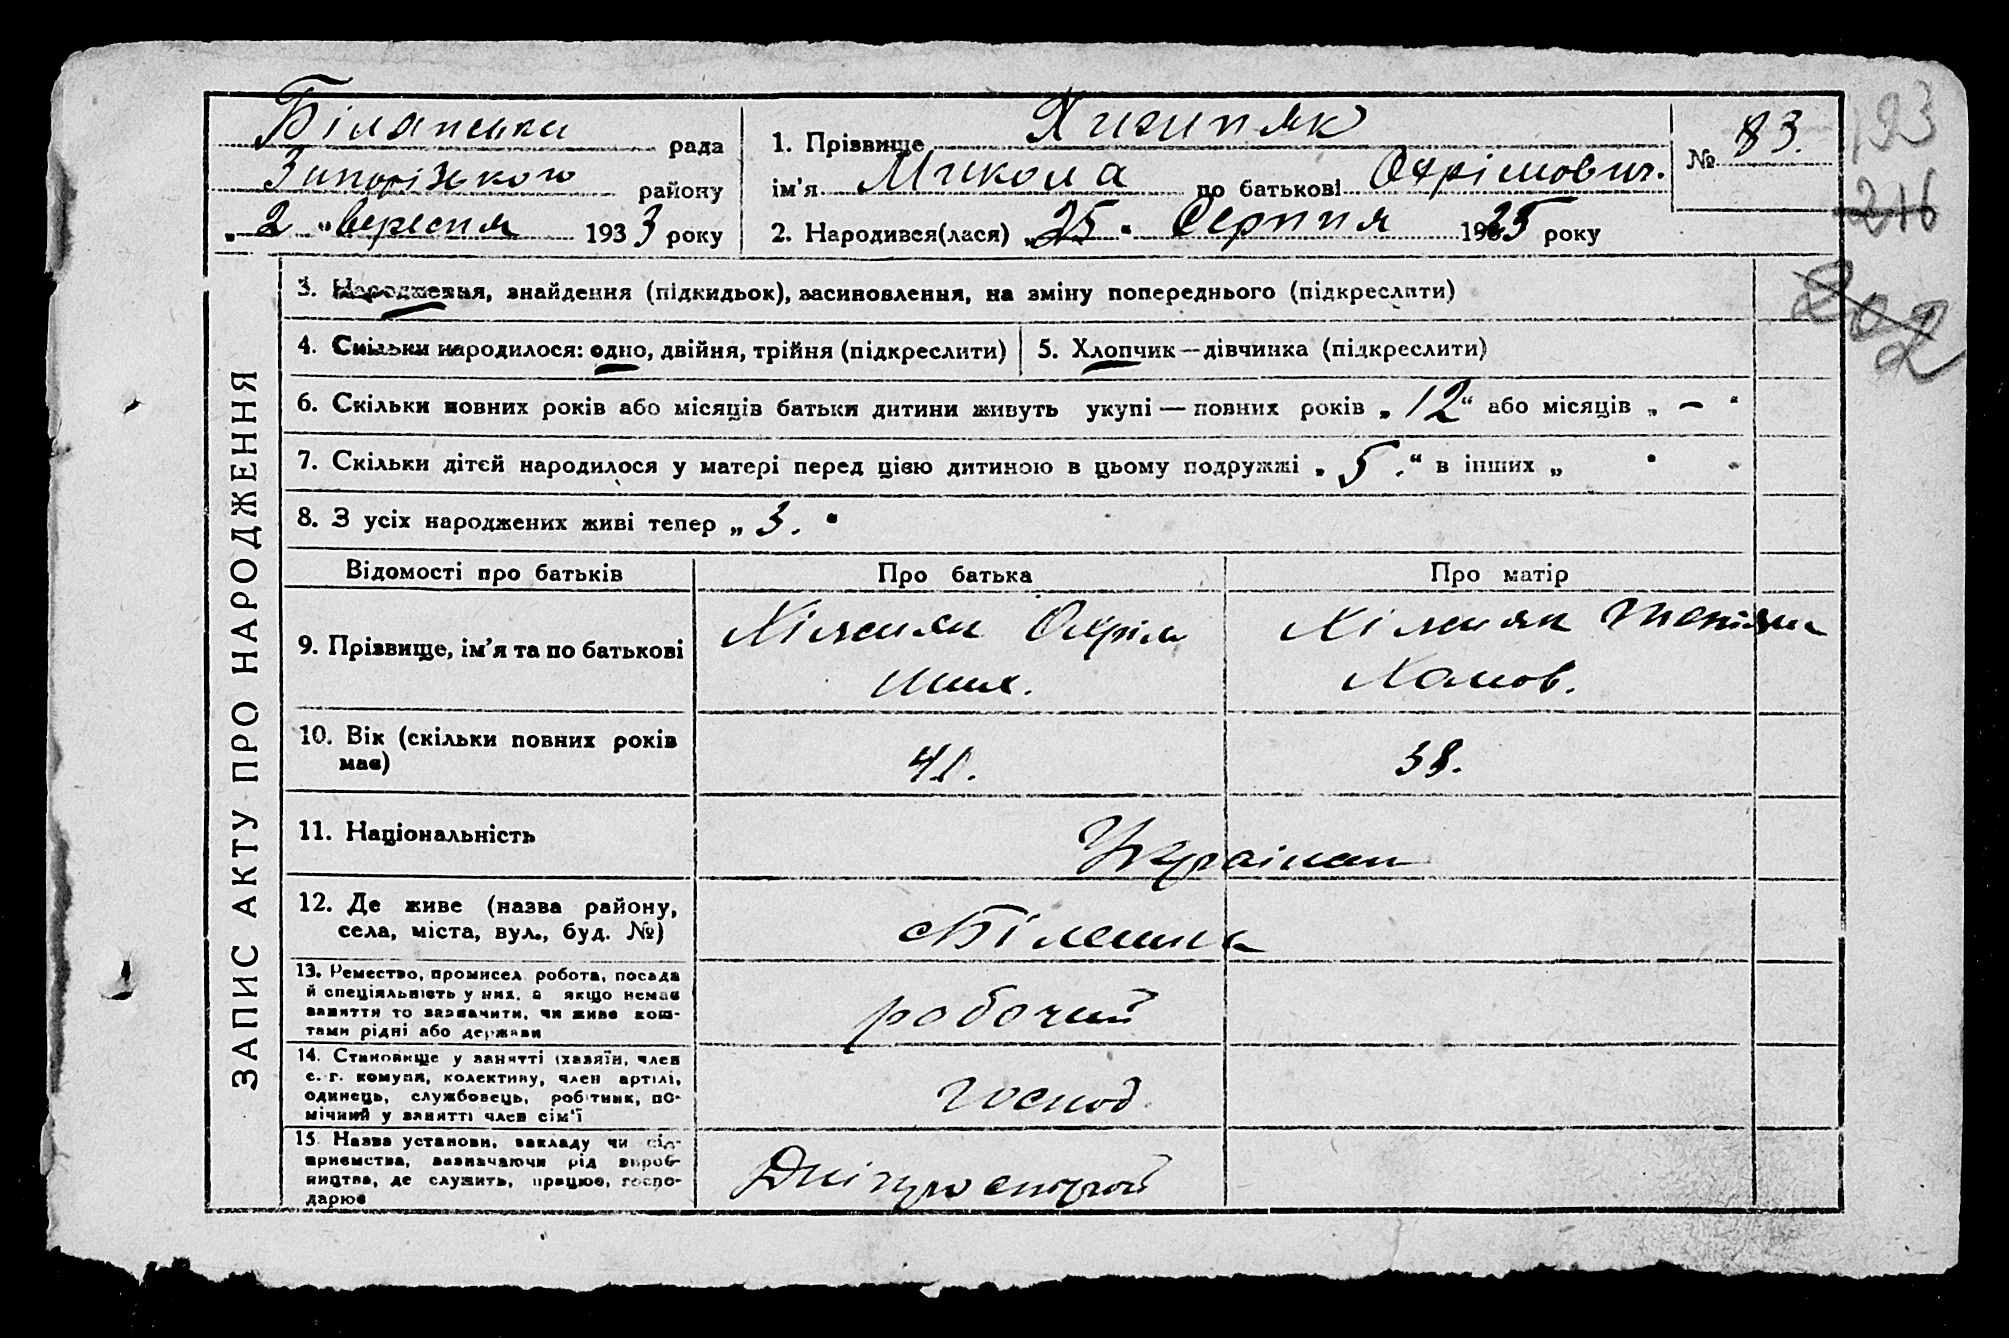 Біленська рада
Запорізького району
„2“ вересня 1933 року
1. Прізвище
ім'я Микола по батькові Охрімович.
2. Народився(лася) „25“ Серпня 1925 року
№ 83.
193
216
202
ЗАПИС АКТУ ПРО НАРОДЖЕННЯ
3. Народження, знайдення (підкидьок), засиновлення, на зміну попереднього (підкреслити)
4. Скільки народилося: одно, двійня, трійня (підкреслити)
5. Хлопчик—дівчинка (підкреслити)
6. Скільки повних років або місяців батьки дитини живуть укупі — повних років „12“ або місяців „ – “
7. Скільки дітей народилося у матері перед цією дитиною в цьому подружжі „5.“ в інших „ “
8. З усіх народжених живі тепер „3.“
Відомості про батьків
Про батька
Про матір
9. Прізвище, ім'я та по батькові
Охрім
10. Вік (скільки повних років має)
41.
38.
11. Національність
12. Де живе (назва району, села, міста, вул., буд. №)
13. Ремество, промисел робота, посада
й спеціяльність у них, а якщо немає
заняття то зазначити, чи живе кош-
тами рідні або держави
робочий
14. Становище у занятті (хазяїн, член
с.-г. комуни, колективу, член артілі,
одинець, службовець, робітник, по-
мічний у занятті член сім'ї
господ.
15. Назва установи, закладу чи під-
приємства, зазначаючи рід вироб-
ництва, де служить, працює, госпо-
дарює
Дніпрострой